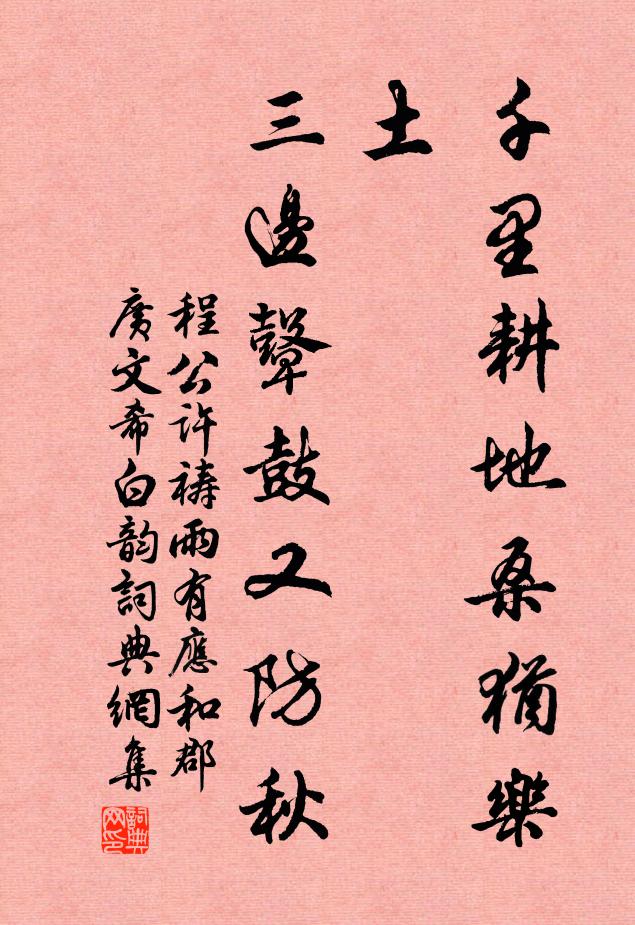 千里耕地桑猶樂
土
三邊鼙鼓又防秋
程公許禱雨有應和郡
廣文希白韵詞典網集
詞典網印